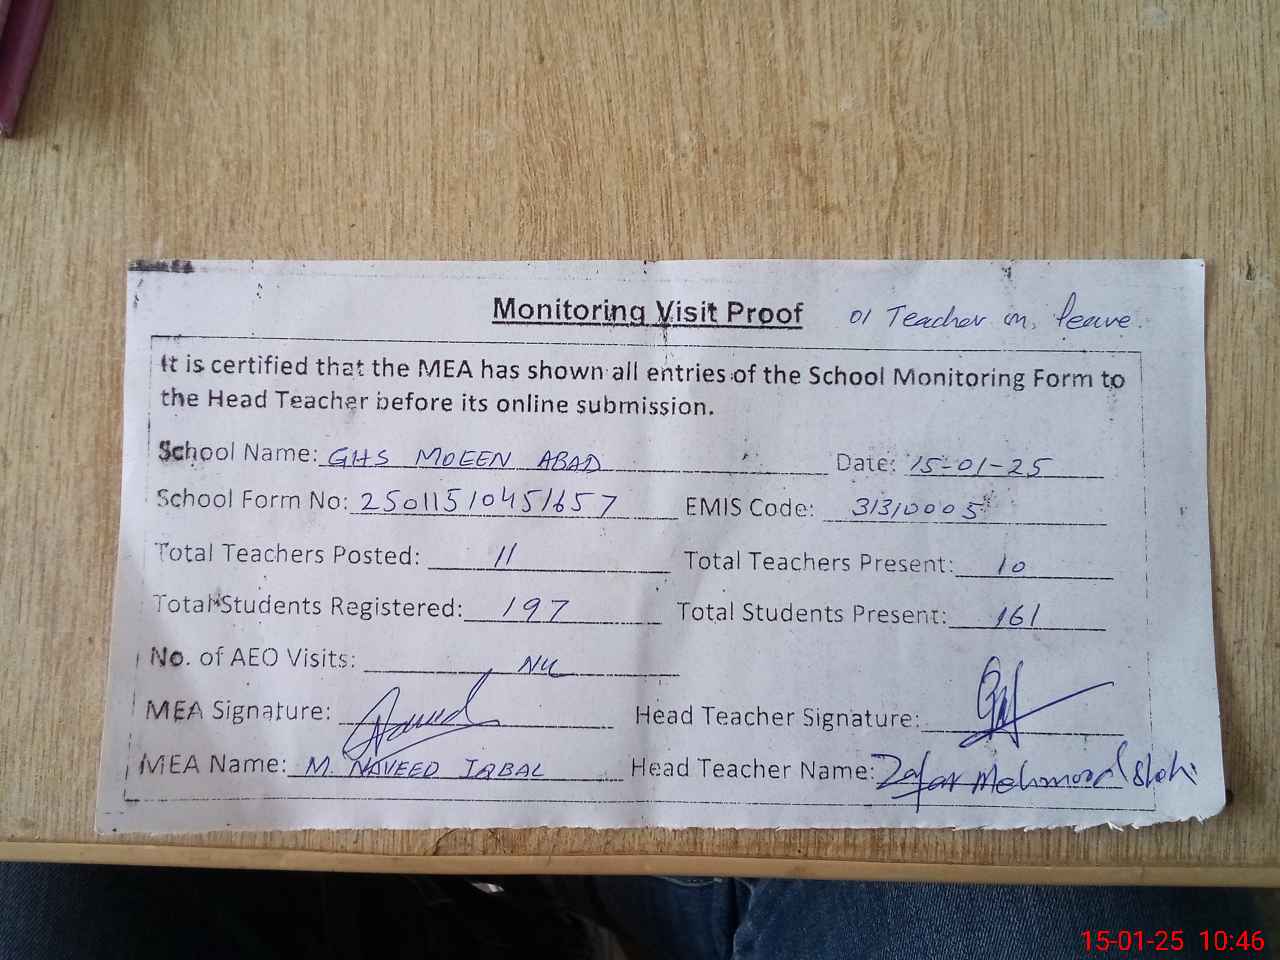 Monitoring Visit Proof 01 Teacher on leave.
It is certified that the MEA has shown all entries of the School Monitoring Form to
the Head Teacher before its online submission.
School Name: GHS MOEEN ABAD Date: 15-01-25
School Form No: 25011510451657 EMIS Code: 31310005
Total Teachers Posted: 11 Total Teachers Present: 10
Total Students Registered: 197 Total Students Present: 161
No. of AEO Visits: NIL
MEA Signature: Head Teacher Signature:
MEA Name: M. NAVEED IQBAL Head Teacher Name: Zafar Mehmood
15-01-25 10:46